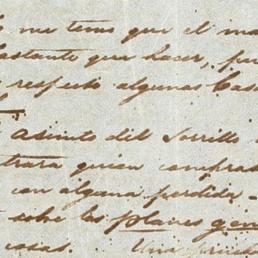 me temo que el ma
bastante que hacer, pe
respecto algunas Casa
Asunto del Sorrillo
trata quien compras
con alguna perdida -
sobre los planes gen
cosas. Una